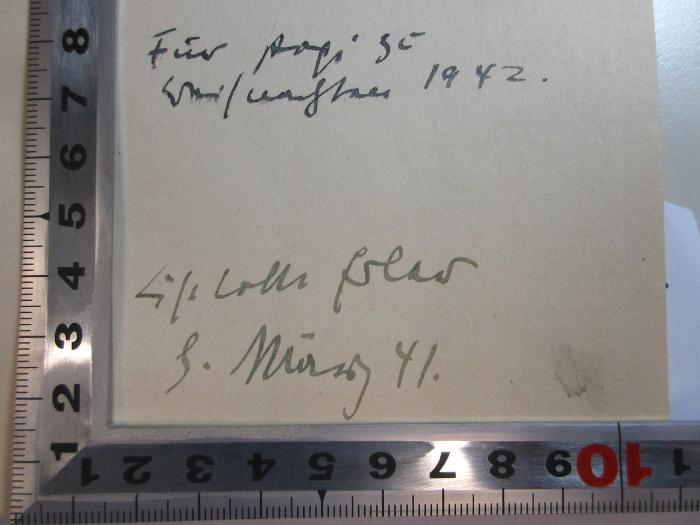 Für
Weihnachten 1942.
Liselotte Erler
9. März 41.
8
7
6
5
4
3
2
1
1 2 3 4 5 6 7 8 9 10 1